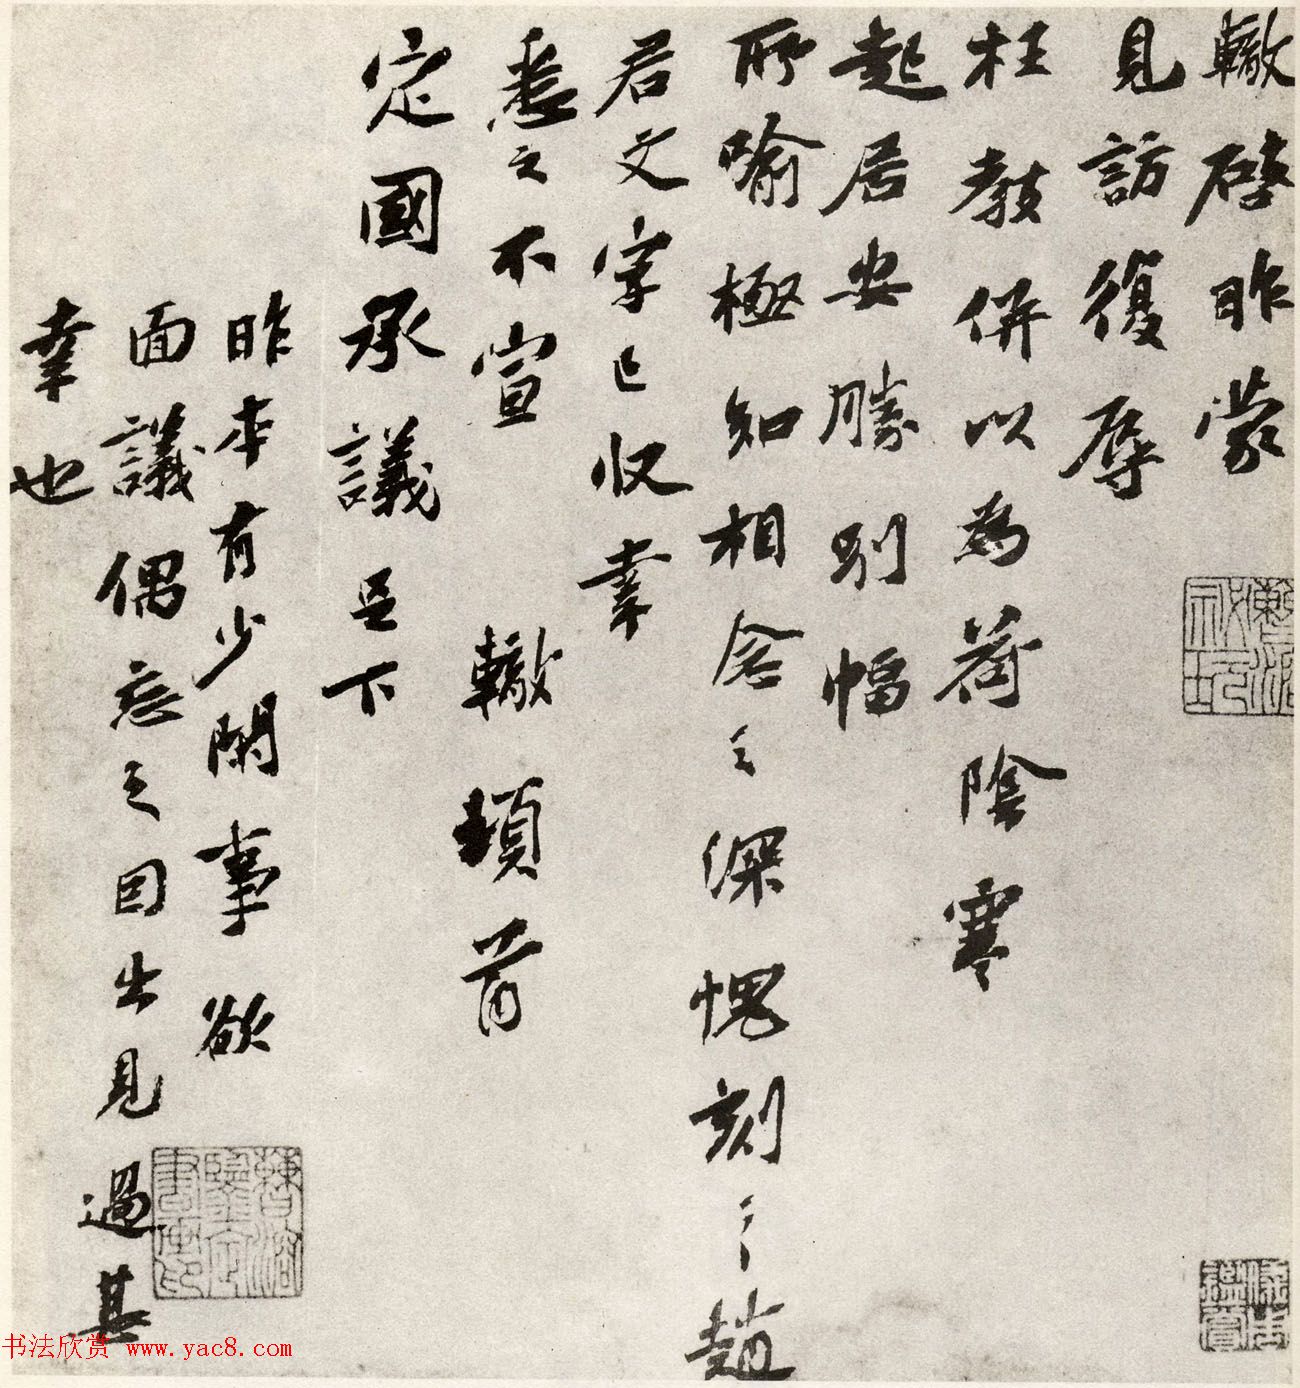 轍啓昨蒙
見訪復辱
枉教併以為荷陰寒
起居安勝別幅
所喻極知相念之深愧刻〻趙
君文字已收幸
悉之不宣 轍頓首
定國承議足下
昨本有少閑事欲
面議偶忘之因出見過甚
幸也
书法欣赏 www.yac8.com